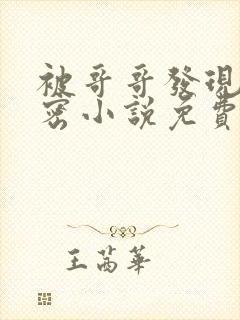 被哥哥發現
密小說免費
王茜華